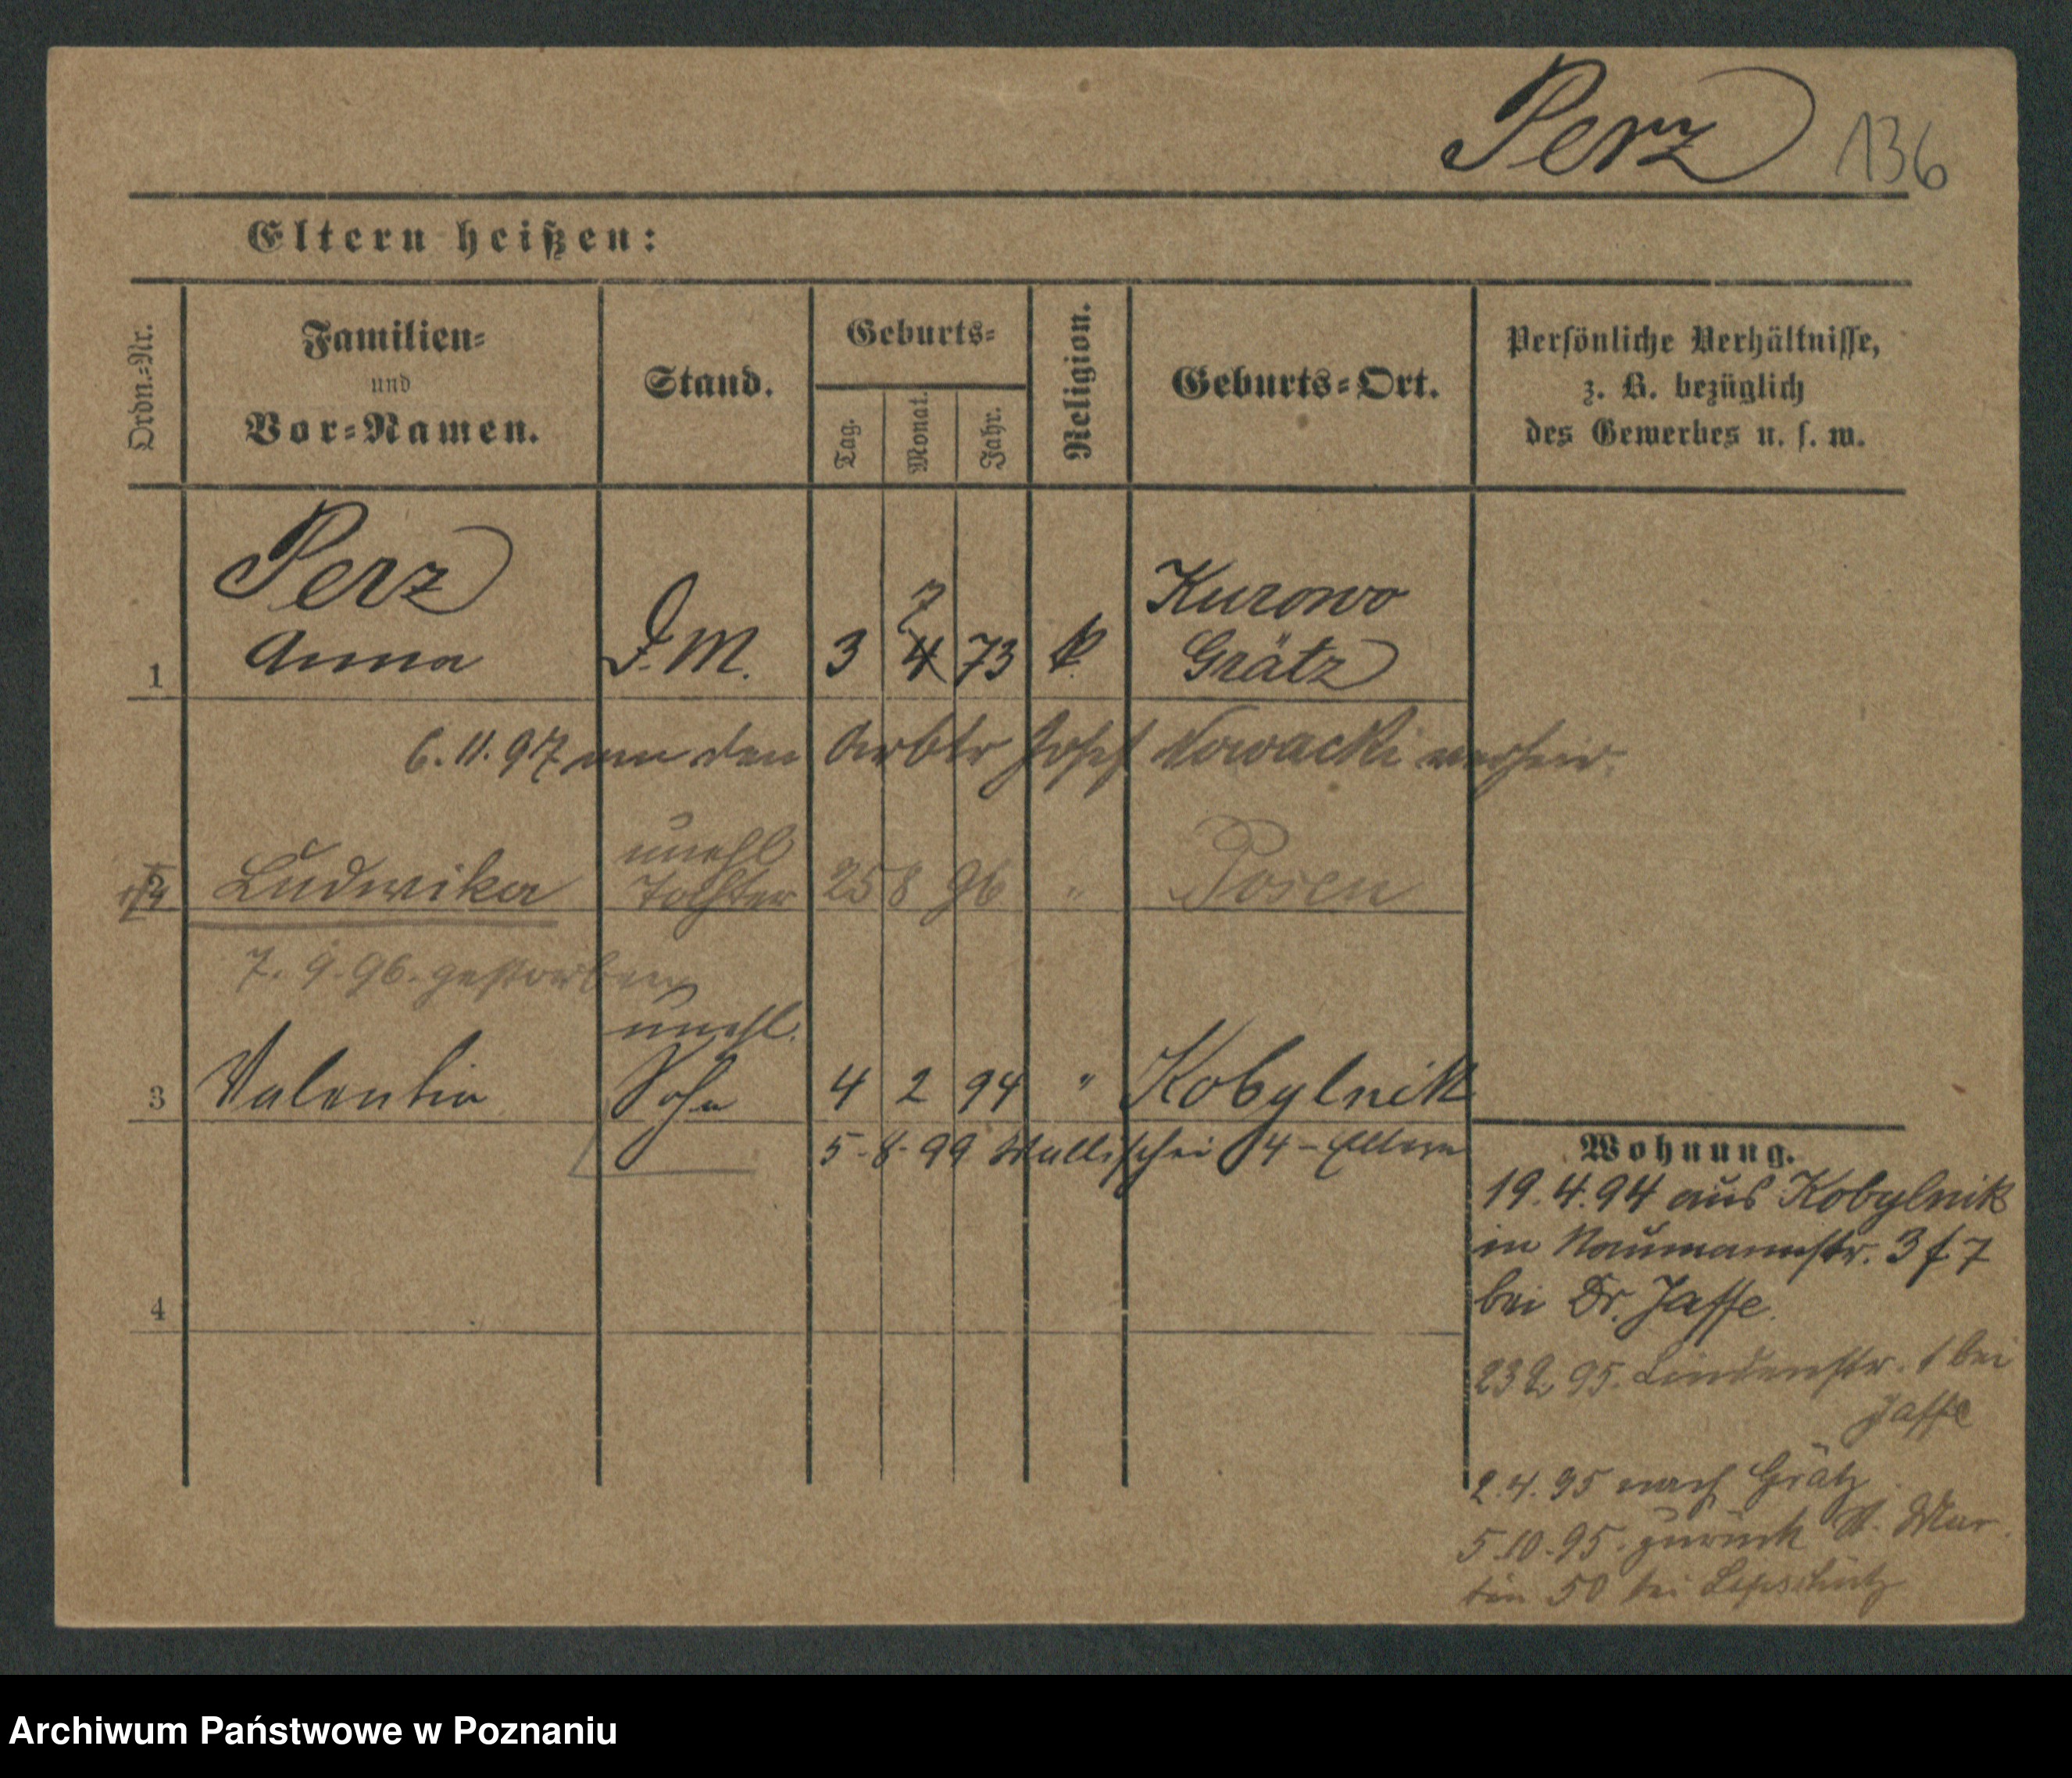 Perz 136
Eltern heißen:
Ordn.-Nr.
Familien-
und
Vor-Namen.
Stand.
Geburts-
Tag.
Monat.
Jahr.
Religion.
Geburts-Ort.
Persönliche Verhältnisse,
z. B. bezüglich
des Gewerbes u. s. w.
Perz
Anna
1
D. M.
3
7
4
73
k.
Kurowo
Grätz
6.11.97 an den Arbtr Josef Nowacki verheir.
2 Ludwika
unehl
Tochter
25 8 96 " Posen
7. 9. 96. gestorben
3 Valentin
unehl.
Sohn
4 2 94 " Kobylnik
5-8-99 Wallischei 14 - Eltern
4
Wohnung.
19.4.94 aus Kobylnik
in Naumannstr. 3 f. 7
bei Dr. Jaffe.
95. Lindenstr. 1 bei
Jaffe
2.4.95 nach Grätz
5.10.95. zurück St. Mar
tin 50 bei
Archiwum Państwowe w Poznaniu